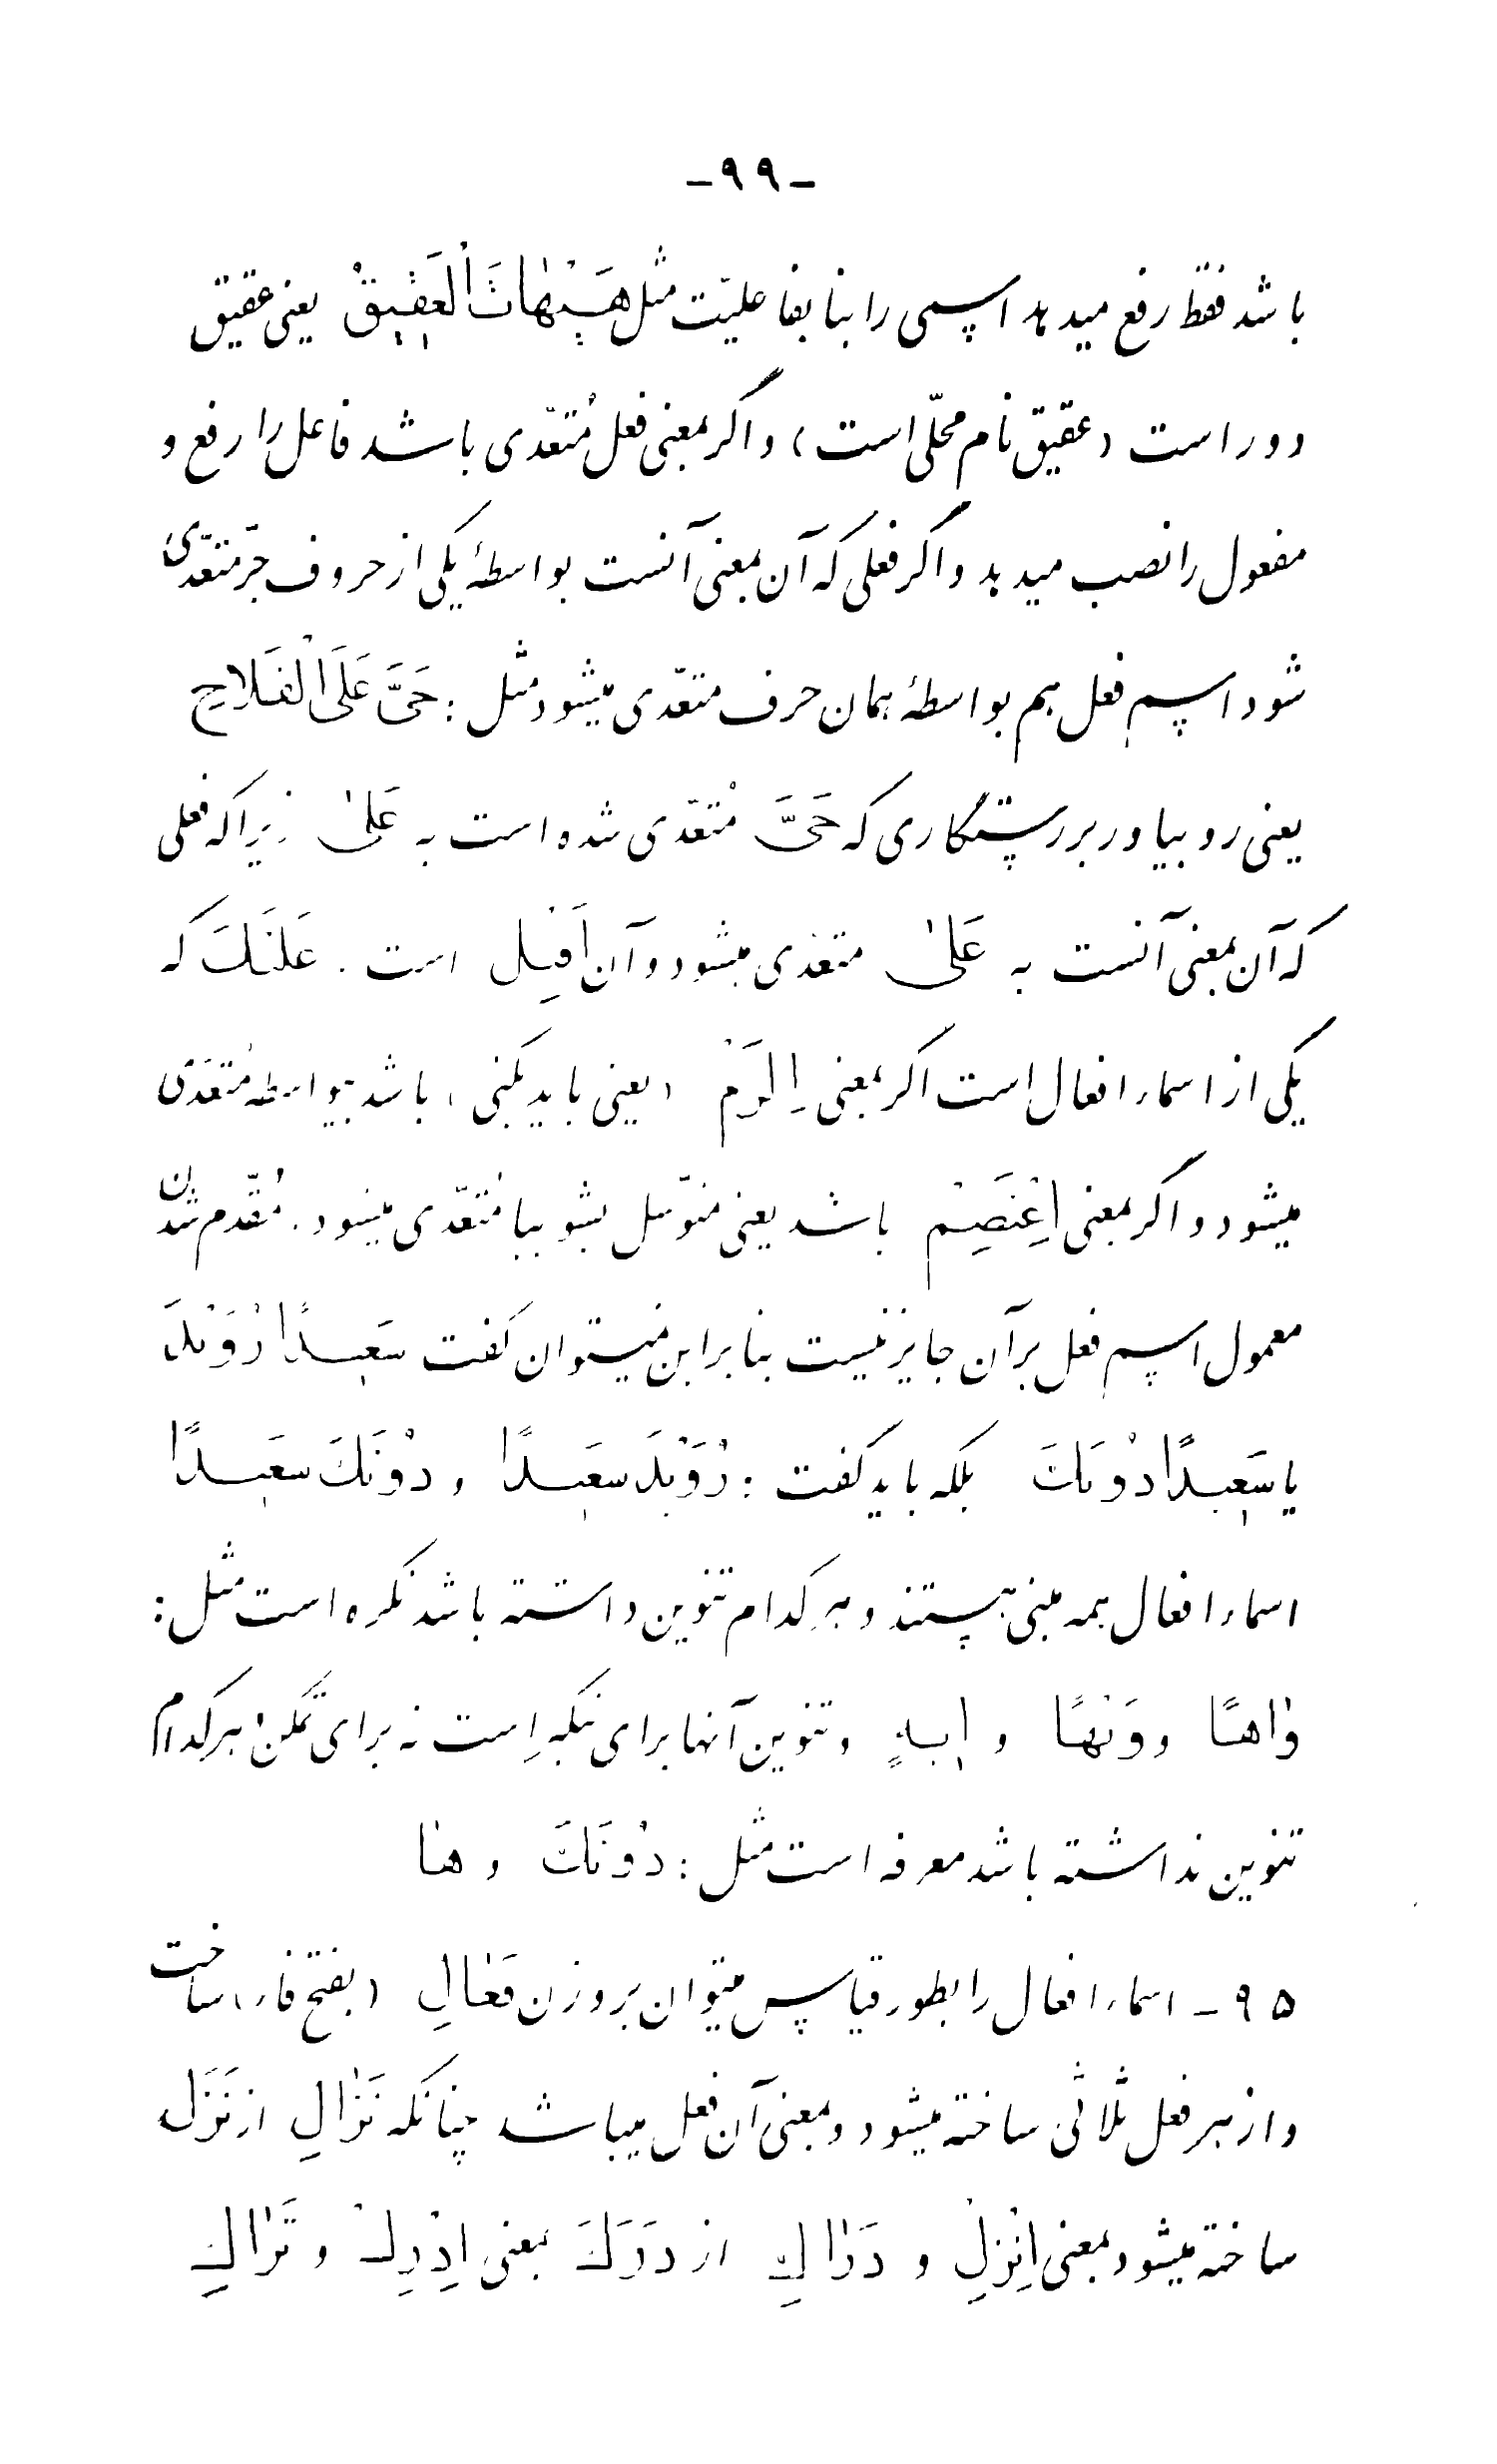 -۹۹-
باشد فقط رفع میدهد اسمی را بنا بفاعلیّت مثل هَیْهاتَ الْعَقیقُ یعنی عقیق
دور است (عقیق نام محلّی است) و اگر بمعنی فعل مُتعّدی باشد فاعل را رفع و
مفعول را نصب میدهد و اگر فعلی که آن بمعنی آنست بواسطهٔ یکی از حروف جرّ متعّدی
شود اسم فعل هم بواسطهٔ همان حرف متعّدی میشود مثل : حَیَّ عَلَی الْفَلاحِ
یعنی رو بیاور بر رستگاری که حَیَّ مُتعّدی شده است به عَلیٰ زیرا که فعلی
که آن بمعنی آنست به عَلیٰ متعّدی میشود و آن اَقْبِل است . عَلَیْکَ که
یکی از اسماء افعال است اگر بمعنی اِلْزَمْ (یعنی باید بکنی) باشد بیواسطه مُتعّدی
میشود و اگر بمعنی اِعْتَصِمْ باشد یعنی متوّسل بشو ببا مُتعّدی میشود . مُقّدم شدن
معمول اسم فعل بر آن جایز نیست بنابراین نمیتوان گفت سَعیدًا رُوَیْدَ
یا سَعیدًا دُونَكَ بلکه باید گفت : رُوَیْدَ سَعیدًا و دُونَكَ سَعیدًا
اسماء افعال همه مبنی هستند و هر کدام تنوین داشته باشد نکره است مثل :
واهًا و وَیْهًا و ایهٍ و تنوین آنها برای تنکیر است نه برای تمکّن و هر کدام
تنوین نداشته باشد معرفه است مثل : دُونَكَ و ها
۹۵ - اسماء افعال را بطور قیاس میتوان بر وزن فَعالِ (بفتح فاء) ساخت
و از هر فعل ثلاثی ساخته میشود و بمعنی آن فعل میباشد چنانکه نَزالِ از نَزَلَ
ساخته میشود بمعنی اِنْزِلْ و دَراكِ از دَرَكَ بمعنی اِدْرِكْ و تَراكِ